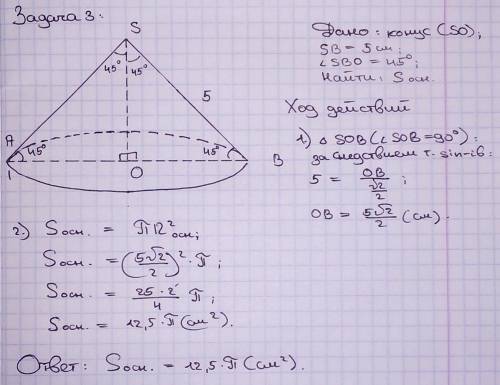 Задача 3:
S
45° 45°
5
A
45° 45°
1 O B
Дано: конус (SO);
SB = 5 см;
∠SBO = 45°;
Найти: Sосн.
Ход действий
1.) △ SOB (∠SOB = 90°):
за следствием т. sin-ів:
5 = OB / (√2/2) ;
OB = 5√2/2 (см).
2.) Sосн. = ПR²осн;
Sосн. = (5√2/2)² · П;
Sосн. = 25·2/4 П;
Sосн. = 12,5·П(см²).
Ответ: Sосн. = 12,5·П(см²).